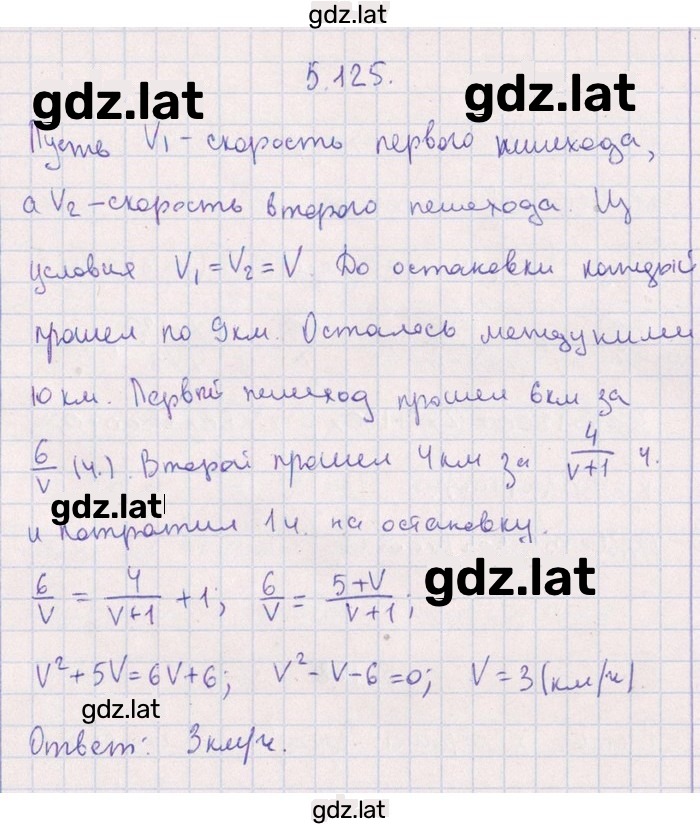 gdz.lat
5.125.
gdz.lat gdz.lat
Пусть V₁ - скорость первого пешехода,
а V₂ - скорость второго пешехода. Из
условия V₁ = V₂ = V. До остановки каждый
прошел по 9км. Осталось между ними
10 км. Первый пешеход прошел 6км за
6/V (ч.). Второй прошел 4км за 4/(V+1) ч.
gdz.lat
и потратил 1ч. на остановку.
gdz.lat
6/V = 4/(V+1) + 1; 6/V = (5+V)/(V+1);
V² + 5V = 6V + 6; V² - V - 6 = 0; V = 3 (км/ч)
gdz.lat
Ответ: 3км/ч.
gdz.lat